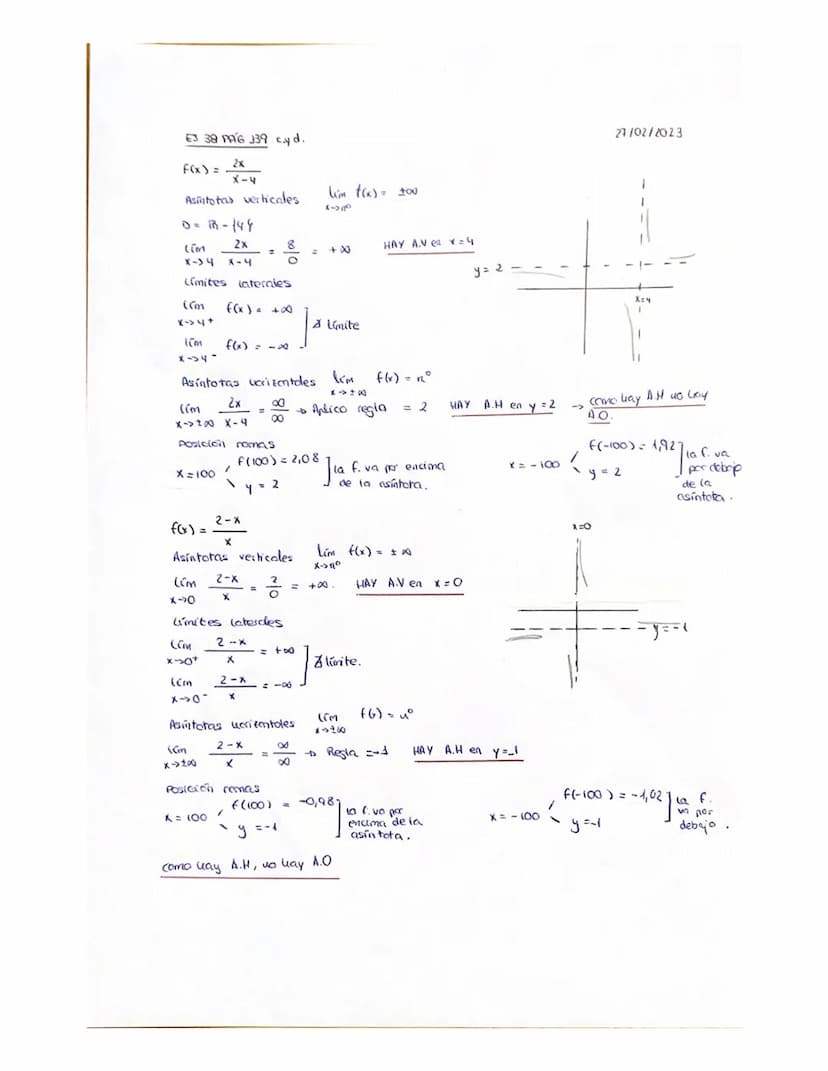 EJ 38 PÁG 139 c y d.
27/02/2023
f(x) = 2x / x-4
Asíntotas verticales lím x->nº f(x) = ±∞
D = ℝ - {4}
lím x->4 2x / x-4 = 8/0 = +∞ HAY A.V en x=4
Límites laterales
lím x->4+ f(x) = +∞
lím x->4- f(x) = -∞
∄ límite
y = 2
x=4
Asíntotas horizontales lím x->±∞ f(x) = nº
lím x->±∞ 2x / x-4 = ∞/∞ -> Aplico regla = 2 HAY A.H en y=2 -> como hay A.H no hay
A.O.
Posición ramas
x=100 f(100) = 2,08
y = 2
la f. va por encima
de la asíntota.
x = -100 f(-100) = 1,92
y = 2
la f. va
por debajo
de la
asíntota.
f(x) = 2-x / x
Asíntotas verticales lím x->nº f(x) = ±∞
lím x->0 2-x / x = 2/0 = +∞. HAY A.V en x=0
Límites laterales
lím x->0+ 2-x / x = +∞
lím x->0- 2-x / x = -∞
∄ límite.
x=0
y=-1
Asíntotas horizontales lím x->±∞ f(x) = nº
lím x->±∞ 2-x / x = ∞/∞ -> Regla =-1 HAY A.H en y=-1
Posición ramas
x = 100 f(100) = -0,98
y =-1
la f. va por
encima de la
asíntota.
x = -100 f(-100) = -1,02
y=-1
la f.
va por
debajo.
como hay A.H, no hay A.O